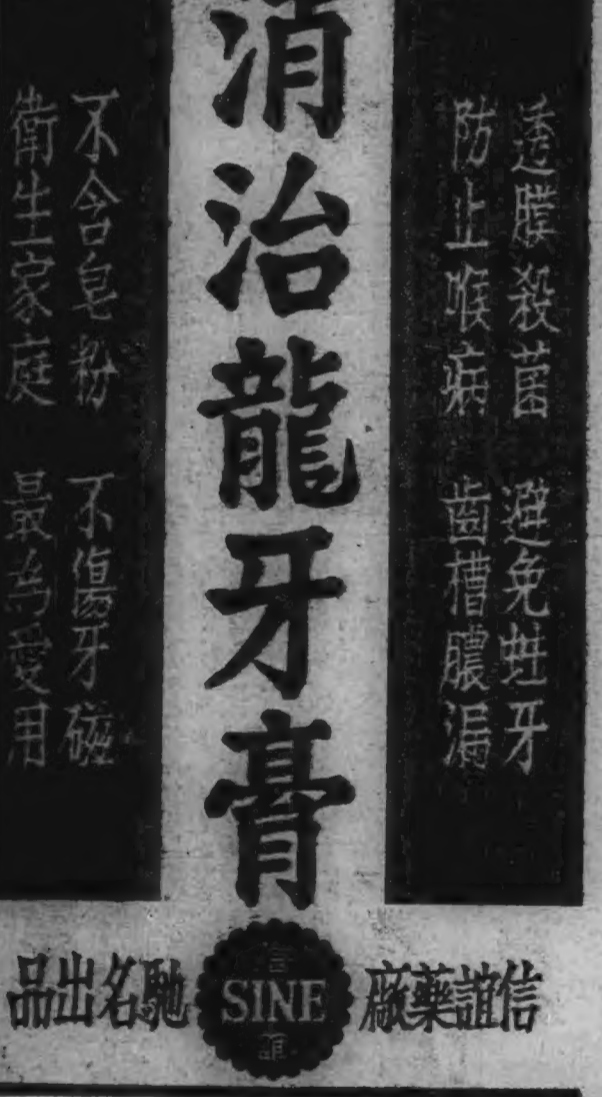 透膜殺菌 避免蛀牙
防止喉病 齒槽膿漏
消治龍牙膏
不含皂粉 不傷牙磁
衛生家庭 最為愛用
信誼藥廠
信
SINE
誼
馳名出品